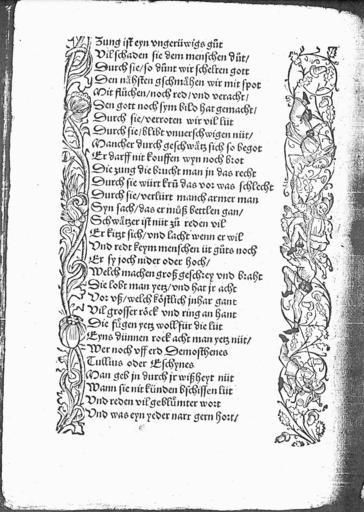 Zung ist eyn vngerüwigs gůt
Vil schaden sie dem menschen důt/
Durch sie/so důnt wir schelten gott
Den nähsten gschmähen wir mit spot
Mit flůchen/noch red/vnd veracht/
Den gott noch sym bild hat gemacht/
Durch sie/verroten wir vil lüt
Durch sie/blibt vnuerschwigen nüt/
Mancher durch geschwätz sich so begot
Er darff nit kouffen wyn noch brot
Die zung die brucht man jn das recht
Durch sie würt krũ das vor was schlecht
Durch sie/verlürt manch armer man
Syn sach/das er můß bettlen gan/
Schwätzer ist nüt zů reden vil
Er kitzt sich/vnd lacht wenn er wil
Vnd redt keym menschen üt gůts noch
Er sy joch nider oder hoch/
Welch machen groß geschrey vnd braht
Die lobt man yetz/vnd hat jr acht
Vor vß/welch köstlich jnhar gant
Vil grosser röck vnd ring an hant
Die fügen yetz woll für die lüt
Eyns dünnen rock acht man yetz nüt/
Wer noch vff erd Demosthenes
Tullius oder Eschynes
Man geb jn durch jr wißheyt nüt
Wann sie nit künden bschissen lüt
Vnd reden vil geblümter wort
Vnd was eyn yeder narr gern hort/